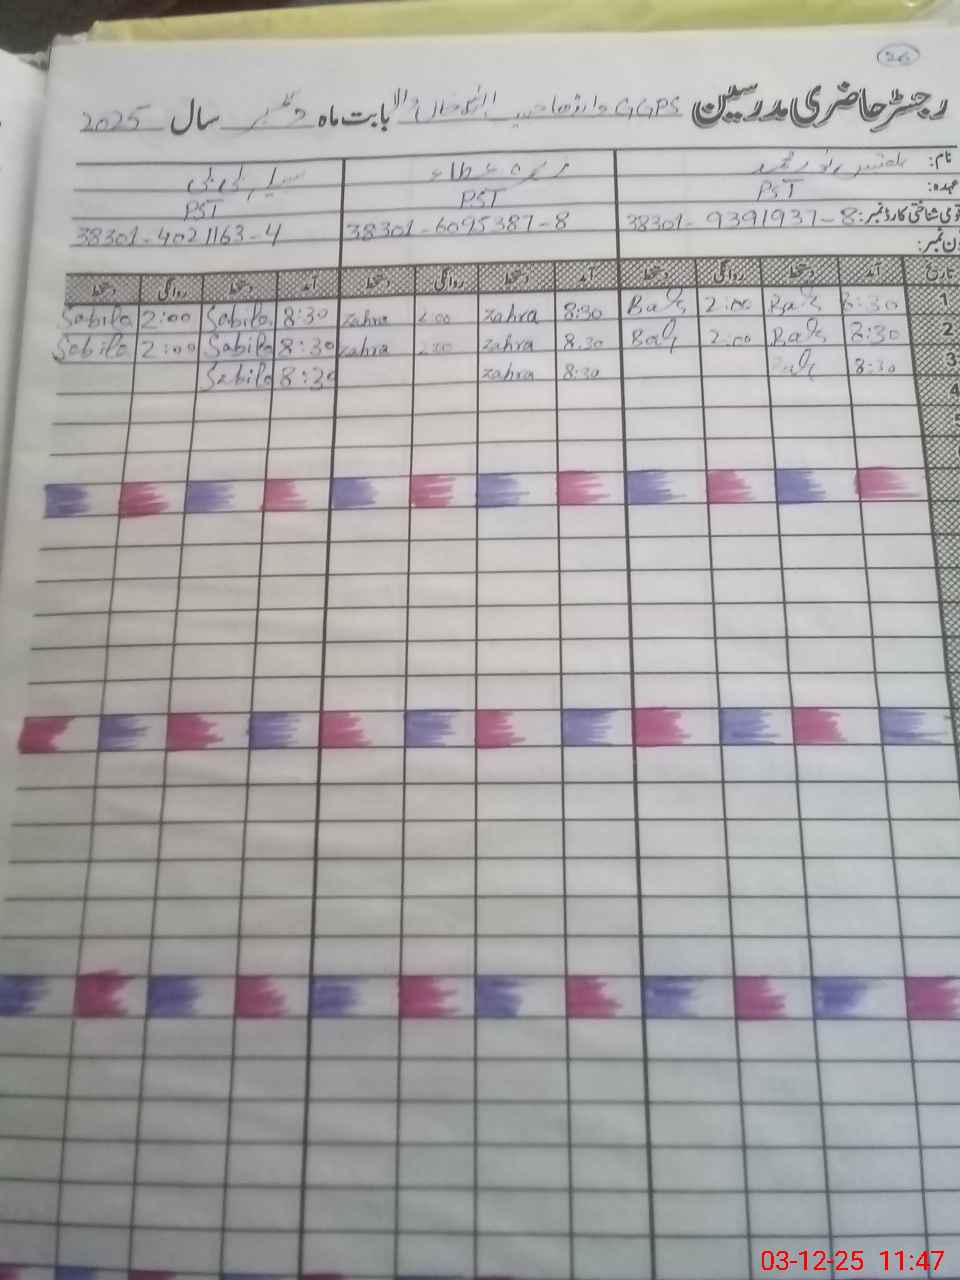 26
رجسٹر حاضری مدرسین GGPS بابت ماہ دسمبر سال 2025
نام:
زہرہ عطاء
عہدہ: PST PST PST
قومی شناختی کارڈ نمبر: 38301-9391937-8 38301-6095387-8 38301-4021163-4
فون نمبر:
تاریخ آمد دستخط روانگی دستخط آمد دستخط روانگی دستخط آمد دستخط روانگی دستخط
1 8:30 2:00 8:30 zahra 2:00 zahra 8:30 Sabila 2:00 Sabila
2 8:30 2:00 8:30 zahra 2:00 zahra 8:30 Sabila 2:00 Sabila
3 8:30 8:30 zahra 8:30 Sabila
4
5
03-12-25 11:47